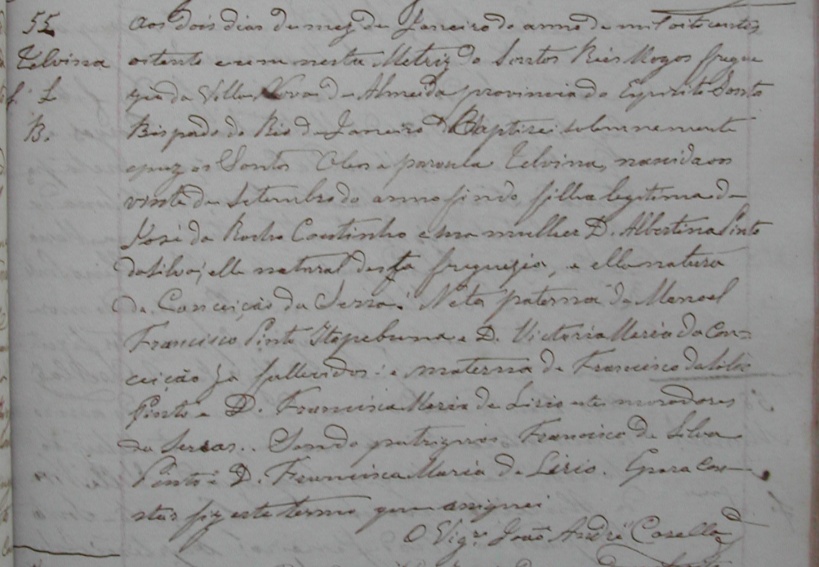 55
Zelvina
f. L
B.
Aos dois dias do mez de Janeiro do anno de mil oitocentos
oitenta e um nesta Matriz do Santos Reis Magos fregue
zia da Villa Nova de Almeida provincia do Espirito Santo
Bispado do Rio de Janeiro Baptizei solemnemente
e puz os Santos Oleos a parvula Zelvina, nascida aos
vinte de Setembro do anno findo filha legitima de
José da Rocha Coutinho e sua mulher D. Albertina Pinto
da Silva, elle natural desta freguezia, e ella natural
da Conceição da Serra. Neta paterna de Manoel
Francisco Pinto e D. Victoria Maria da Con=
ceição ja fallecidos: e materna de Francisco da Silva
Pinto e D. Francisca Maria de Lirio moradores
na Serra. Sendo padrinhos Francisco da Silva
Pinto e D. Francisca Maria de Lirio. E para con
star fiz este termo que assignei
O Vigr.º João André Casella